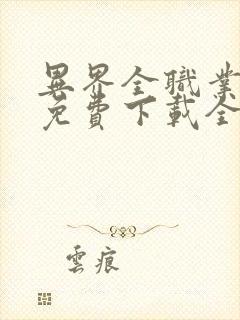 異界全職業
免費下載全
雲痕